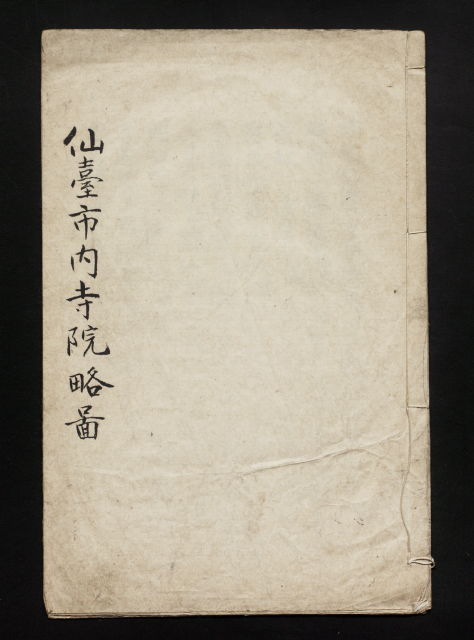 仙臺市内寺院略啚